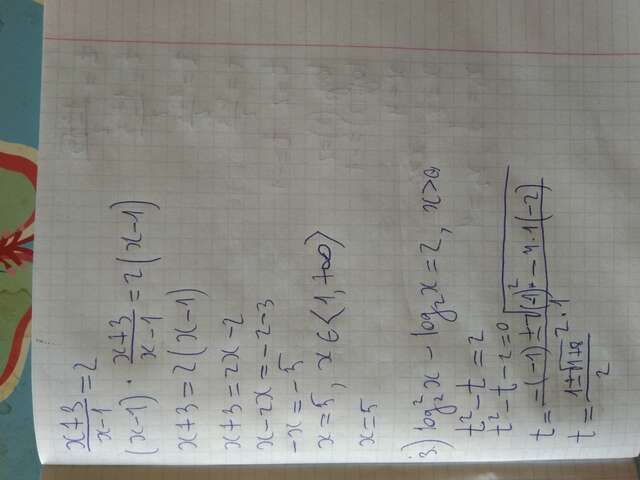 x+3/x-1 = 2
(x-1) · x+3/x-1 = 2(x-1)
x+3 = 2(x-1)
x+3 = 2x-2
x-2x = -2-3
-x = -5
x = 5, x ∈ ⟨1, +∞⟩
x = 5
3) log₂²x - log₂x = 2, x>0
t² - t = 2
t² - t - 2 = 0
t = -(-1) ± √(-1)² - 4·1(-2) / 2·1
t = 1±√1+8 / 2